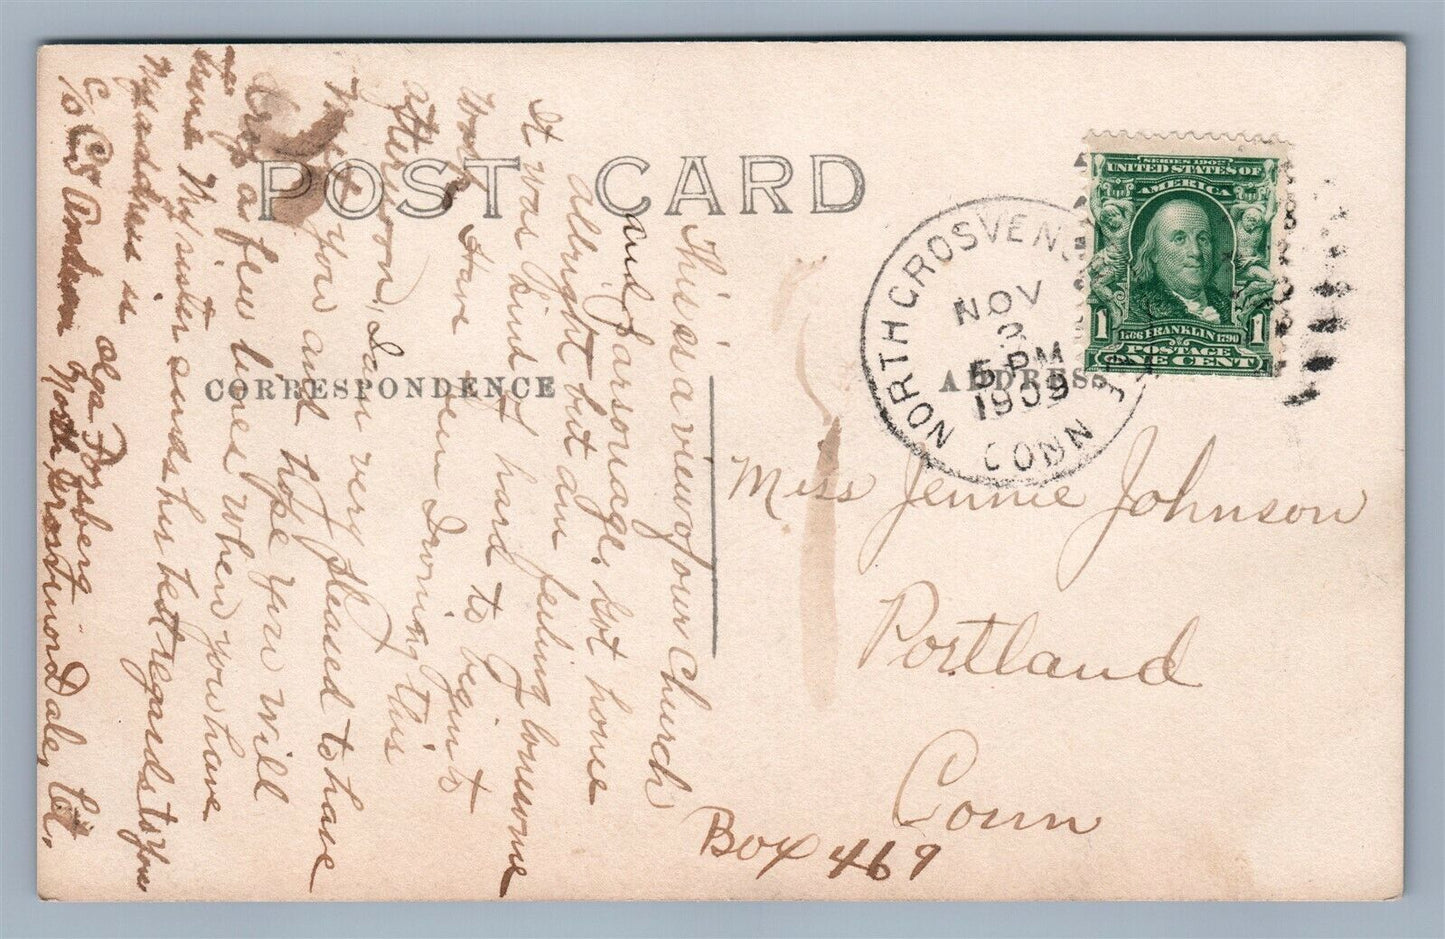 POST CARD
CORRESPONDENCE
ADDRESS
NORTH GROSVENO
NOV
3
5 PM
1909
CONN
SERIES 1902
UNITED STATES OF
AMERICA
1
1
1706 FRANKLIN 1790
POSTAGE
ONE CENT
Miss Jennie Johnson
Portland
Conn
Box 469
This is a view of our Church
and parsonage. Got home
allright but am feeling lonesome
It was kind of hard to begin to
Work. Have been Ironing this
afternoon, I am very pleased to have
met you and hope you will
drop a few lines when you have
time My sister sends her best regards to you
My address is Olga Forsberg
C/O North Grosvenor Dale, Ct.